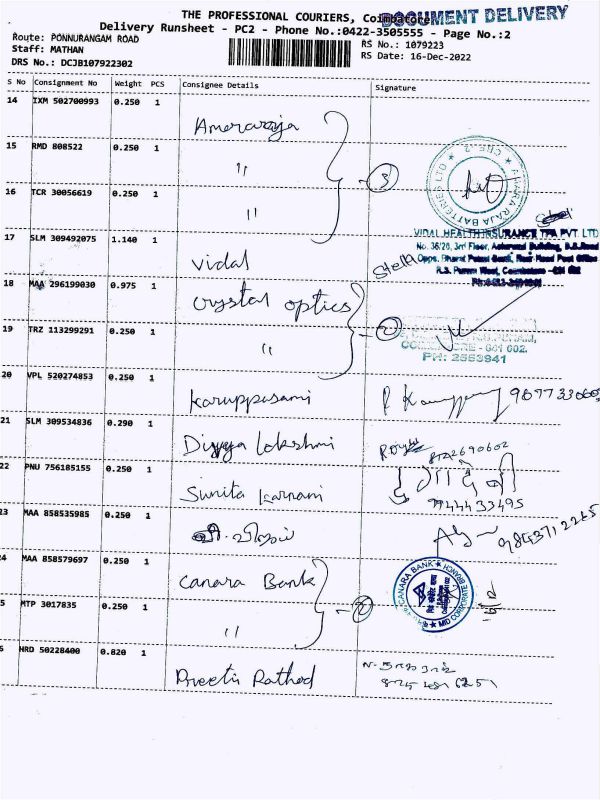 THE PROFESSIONAL COURIERS, Coimbatore
DOCUMENT DELIVERY
Delivery Runsheet - PC2 - Phone No.:0422-3505555 - Page No.:2
Route: PONNURANGAM ROAD
RS No.: 1079223
Staff: MATHAN
RS Date: 16-Dec-2022
DRS No.: DCJB107922302
S No Consignment No Weight PCS Consignee Details Signature
14 IXM 502700993 0.250 1
Amararaja
15 RMD 808522 0.250 1
"
③
AMARA RAJA BATTERIES LTD ★ CBE-2 ★
16 TCR 30056619 0.250 1
"
17 SLM 309492075 1.140 1
Vidal
VIDAL HEALTH INSURANCE TPA PVT. LTD
No. 36/26, 3rd Floor, Building, D.B.Road
Opps. Bharat Petrol Bunk, Near Head Post Office
R.S. Puram West, Coimbatore
Stella
18 MAA 296199030 0.975 1
Crystal optics
②
19 TRZ 113299291 0.250 1
"
COIMBATORE - 641 002.
PH: 2553941
20 VPL 520274853 0.250 1
Karuppasami
21 SLM 309534836 0.290 1
Divya Lakshmi
8762690602
22 PNU 756185155 0.250 1
Sunita Karnam
9944433495
23 MAA 858535985 0.250 1
24 MAA 858579697 0.250 1
Canara Bank
②
CANARA BANK ★ MID CORPORATE BRANCH ★
5 MTP 3017835 0.250 1
"
6 HRD 50228400 0.820 1
Preeti Rathod